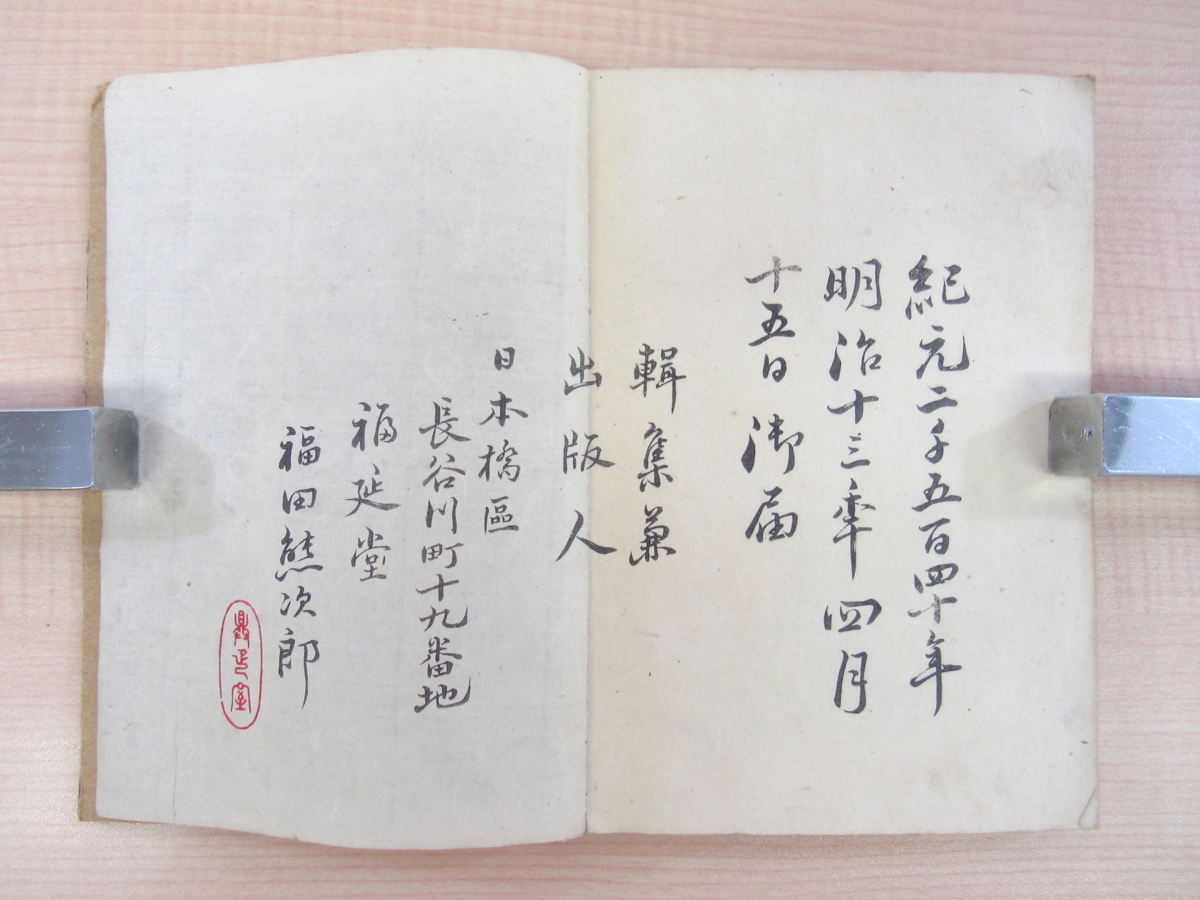 紀元二千五百四十年
明治十三年四月
十五日御届
輯集兼
出版人
日本橋區
長谷川町十九番地
福延堂
福田熊次郎